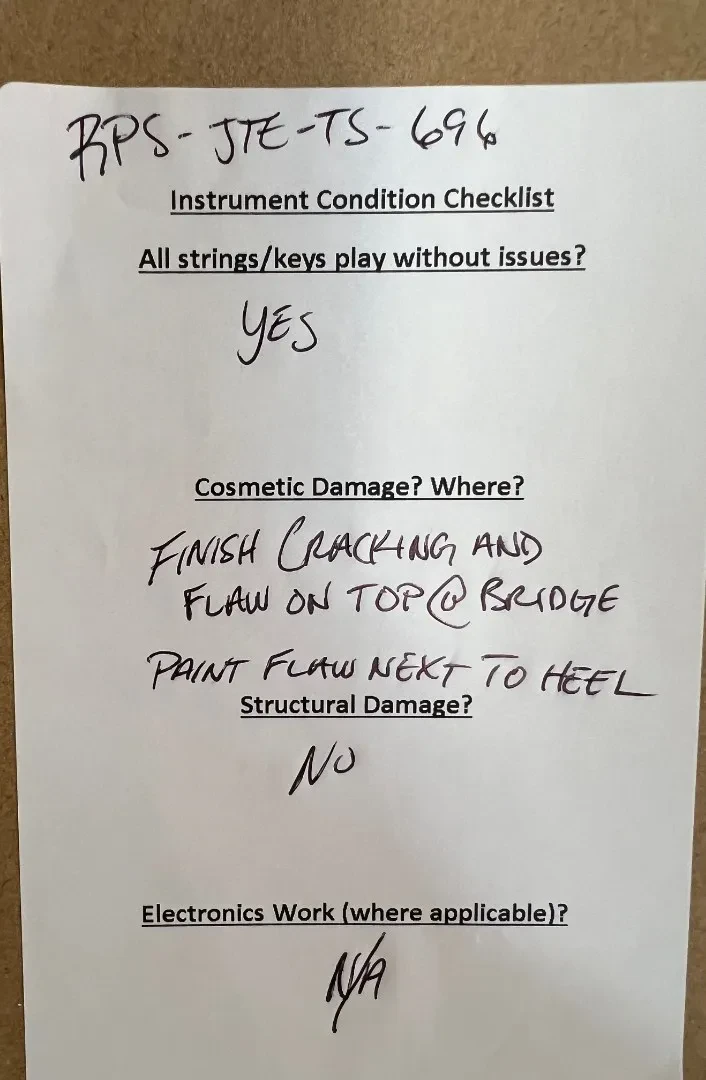 RPS-JTE-TS-696
Instrument Condition Checklist
All strings/keys play without issues?
YES
Cosmetic Damage? Where?
FINISH CRACKING AND
FLAW ON TOP @ BRIDGE
PAINT FLAW NEXT TO HEEL
Structural Damage?
NO
Electronics Work (where applicable)?
N/A